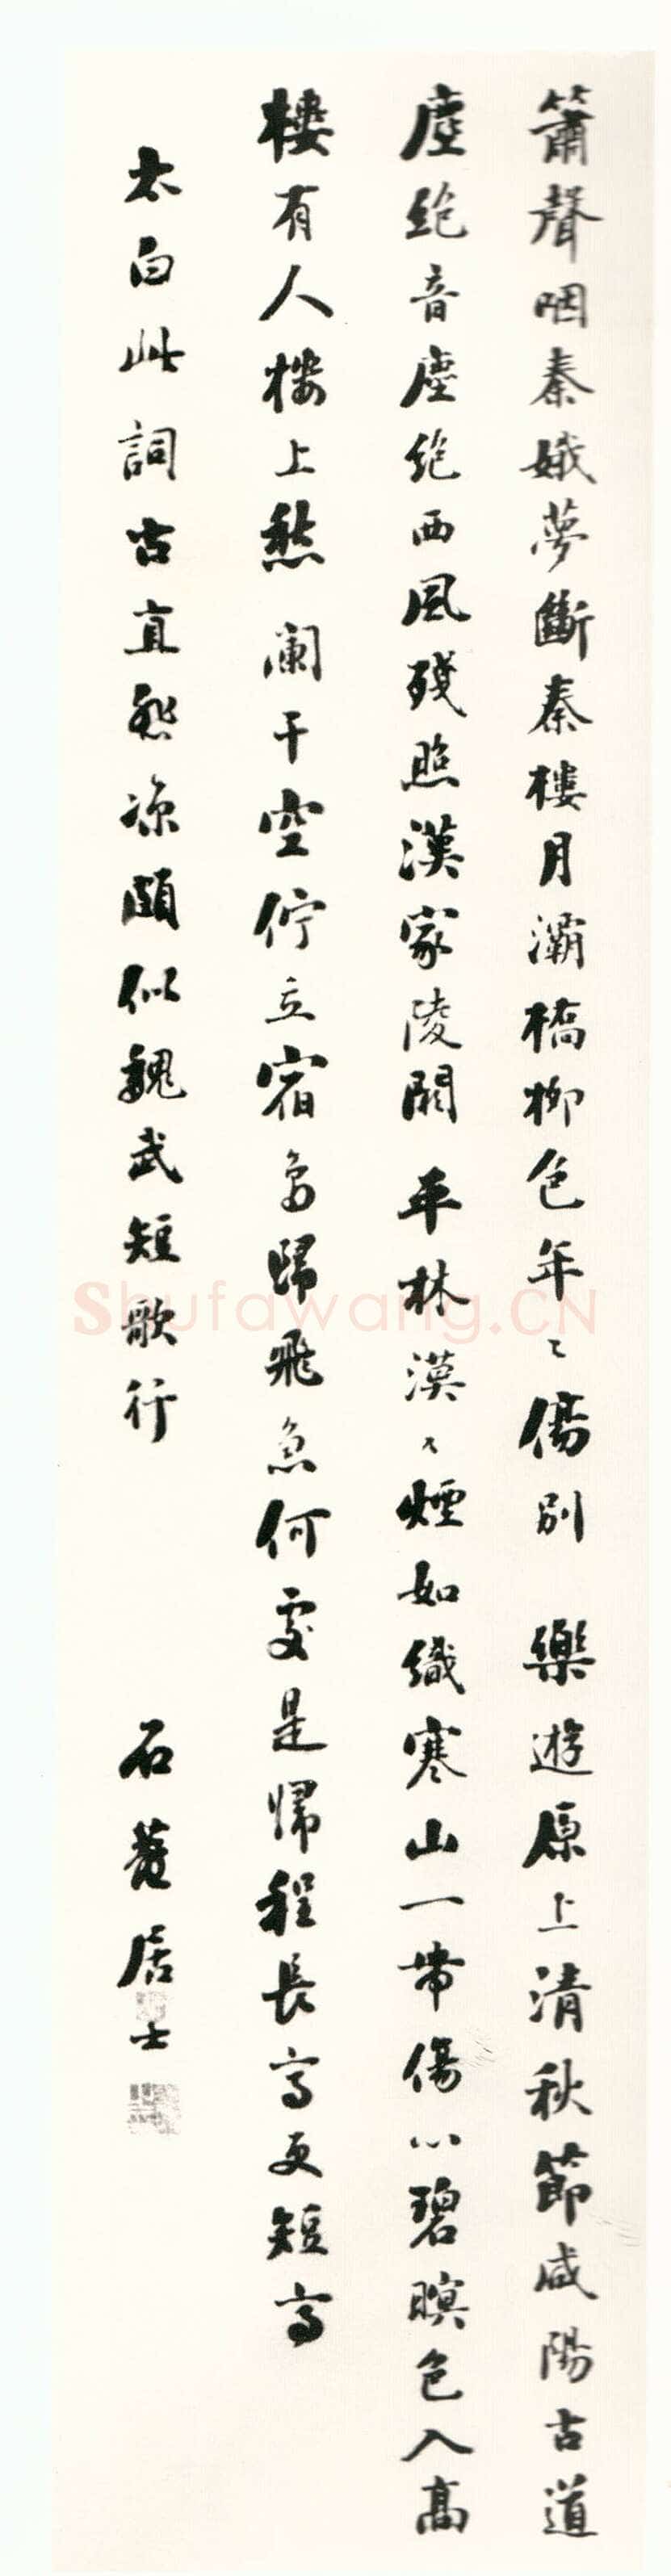 簫聲咽秦娥夢斷秦樓月灞橋柳色年〻傷別 樂遊原上清秋節咸陽古道
塵絶音塵絶西風殘照漢家陵闕 平林漠〻煙如織寒山一帶傷心碧暝色入高
樓有人樓上愁 闌干空佇立宿鳥歸飛急何處是歸程長亭更短亭
太白此詞古直悲涼頗似魏武短歌行 石菴居士
Shufawang.CN